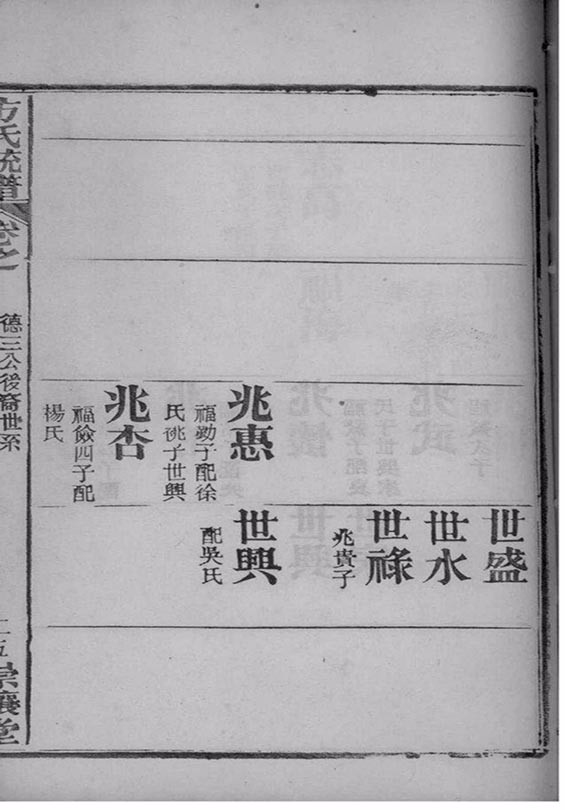 兆惠
福勤子配徐
氏祧子世興
兆杏
福儉四子配
楊氏
世盛
世水
世祿
兆貴子
世興
配吳氏
方氏統譜
卷之
德三公後裔世系
二五
崇讓堂